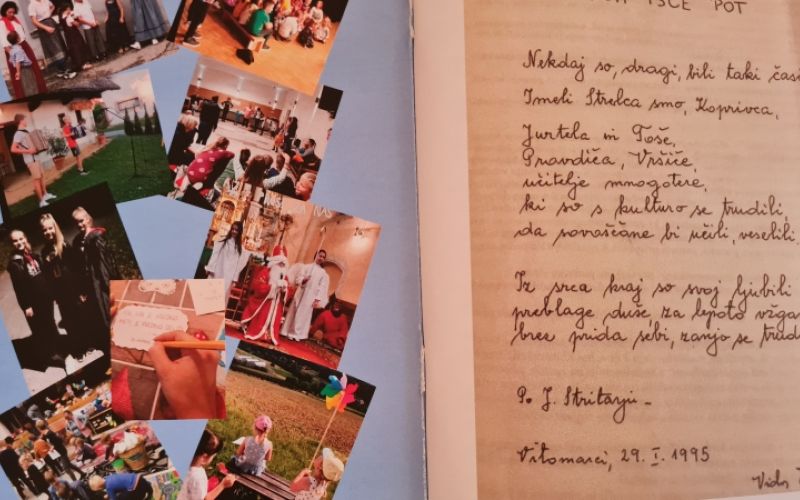 IŠČE POT
Nekdaj so, dragi, bili taki časi
Imeli Strelca smo, Koprivca,
Jurtela in Toše,
Pravdiča, Vršiče,
učitelje mnogotere,
ki so s kulturo se trudili,
da sovaščane bi učili, veselili,
Iz srca kraj so svoj ljubili
preblage duše za lepoto vžgali
brez prida sebi, zanjo se trudi
Po J. Stritarju -
Vitomarci, 29. I. 1995